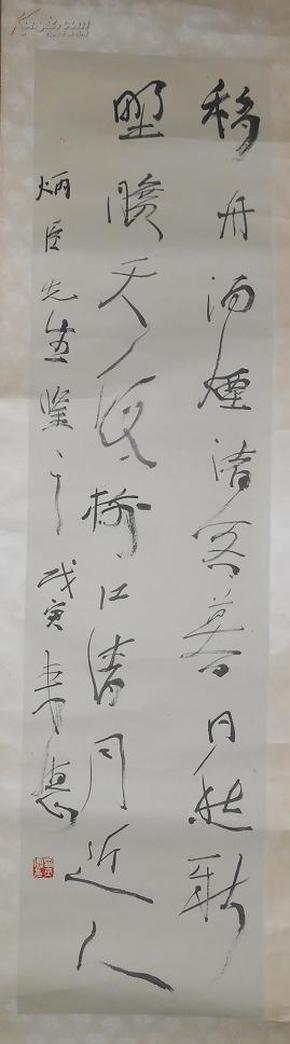 移舟泊煙渚客暮日愁新
野曠天低樹江清月近人
炳臣先生鑒之 戊寅